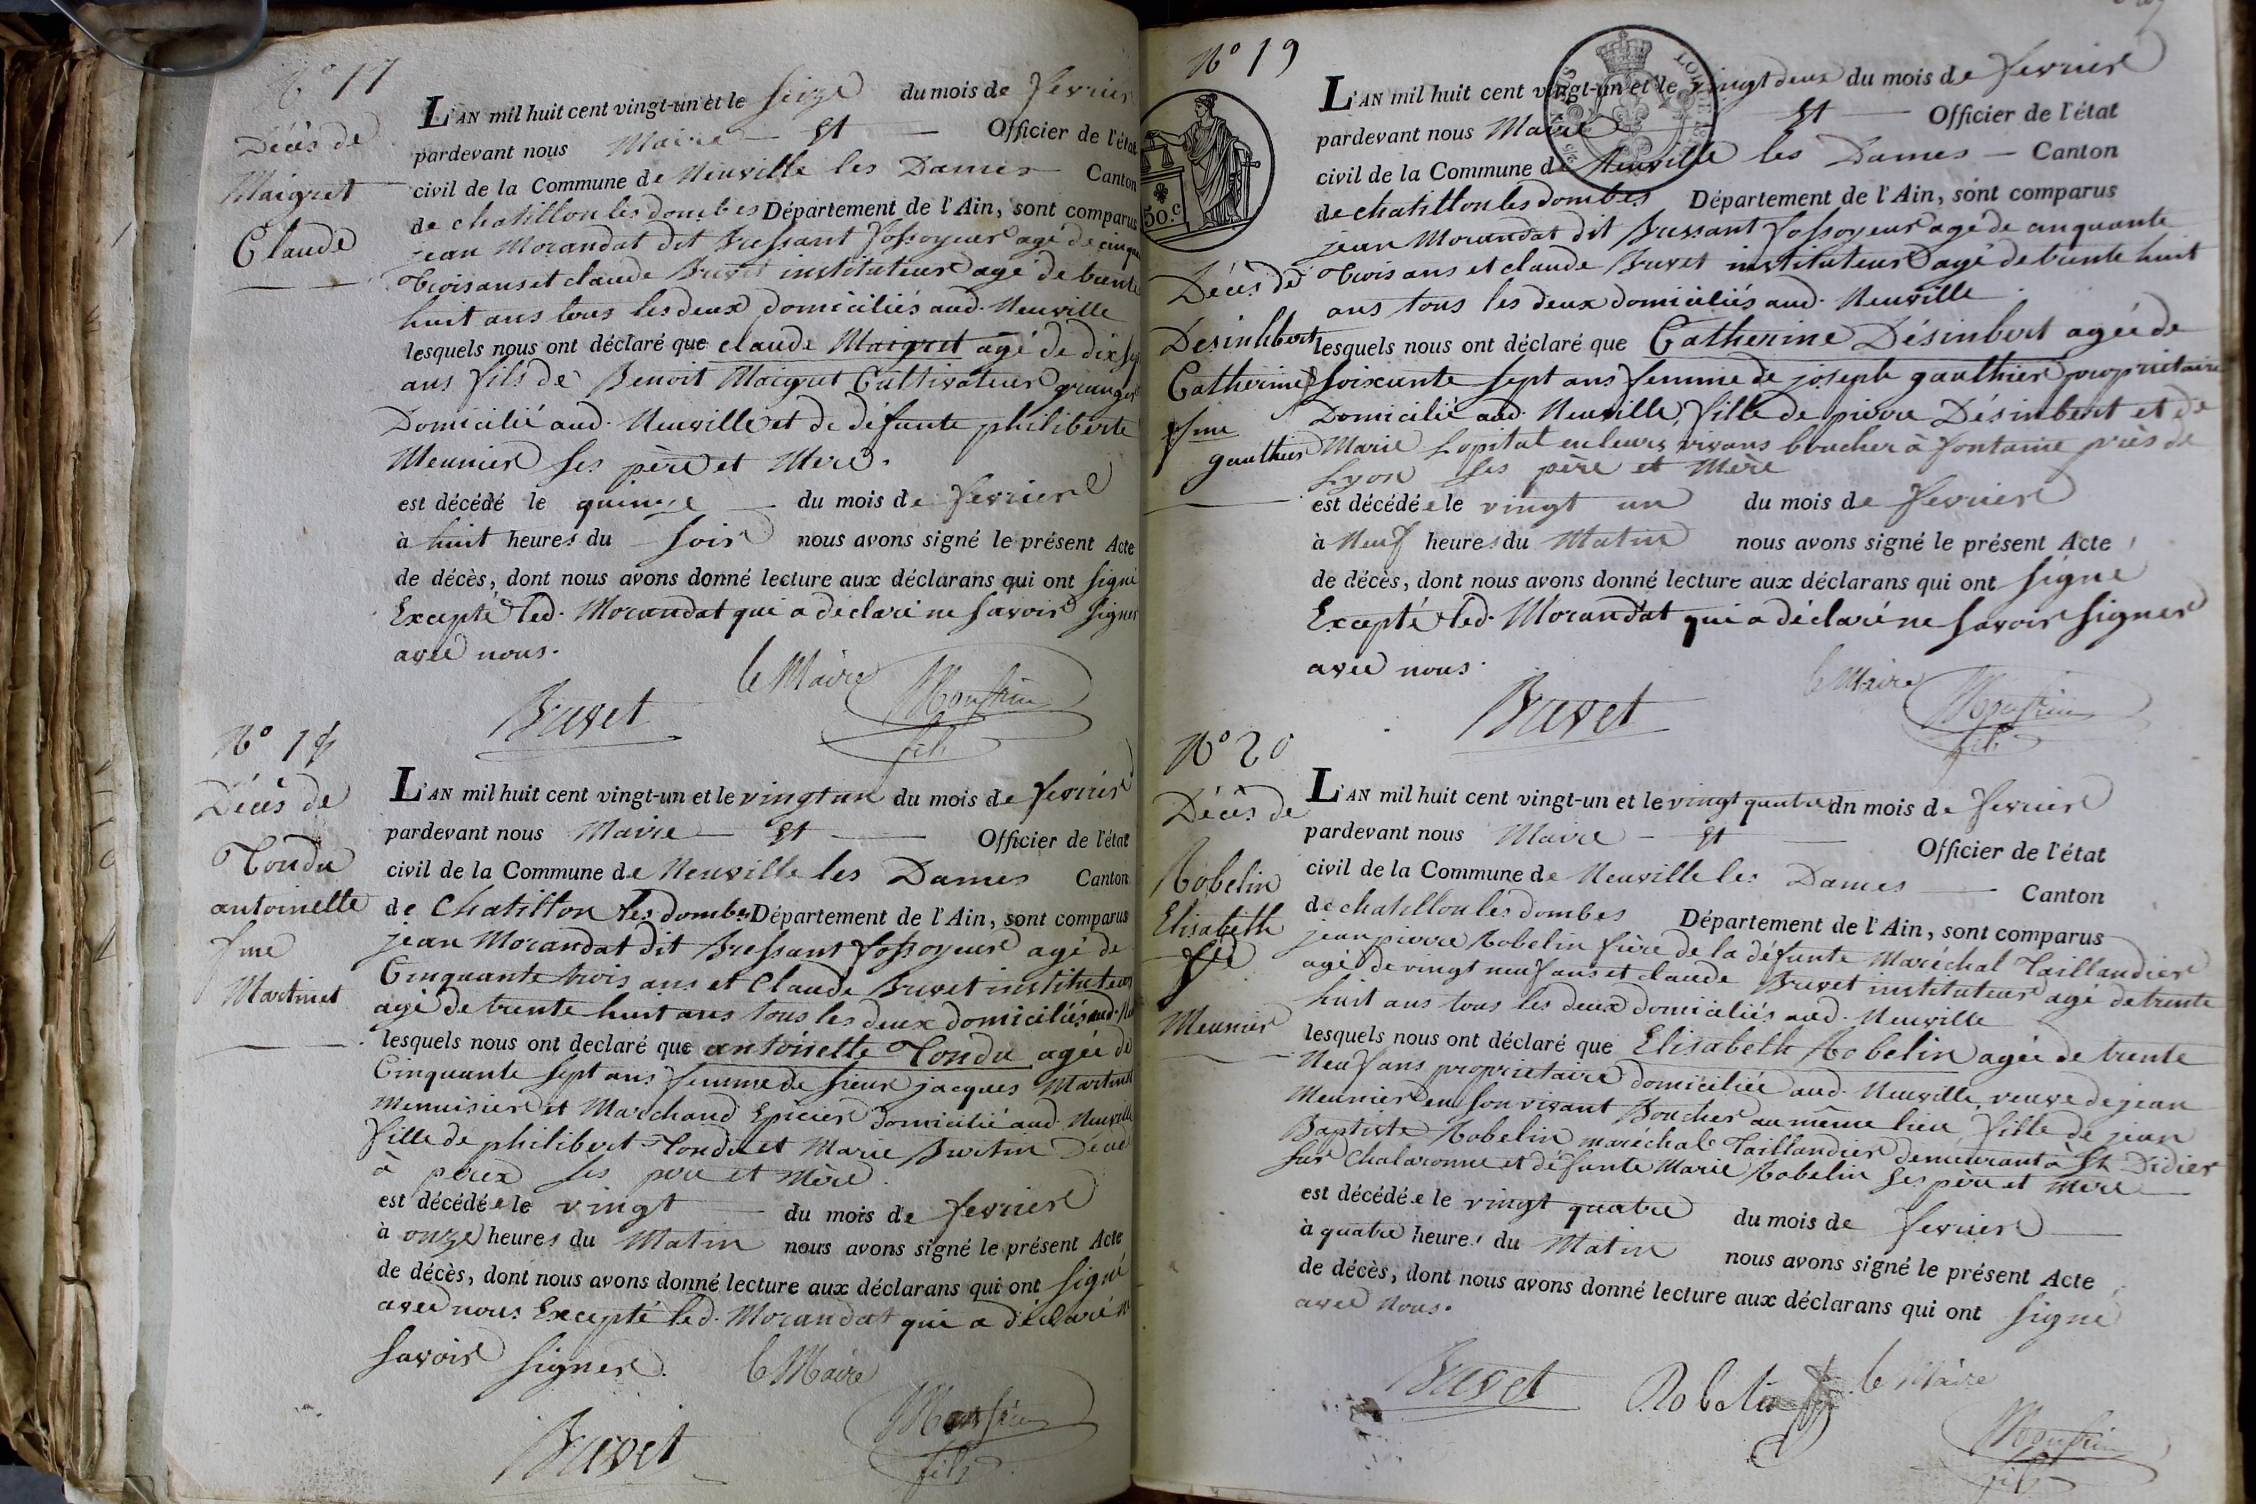 N° 17
Décès de
Maigret
Claude
L'AN mil huit cent vingt-un et le seize du mois de fevrier
pardevant nous Maire — et — Officier de l'état
civil de la Commune de Neuville les Dames Canton
de chatillon les dombes Département de l'Ain, sont comparus
jean Morandat dit Bressant fossoyeur agé de cinqu
trois ans et claude Buvet instituteur agé de trente
huit ans tous les deux domiciliés aud. Neuville
lesquels nous ont déclaré que claude Maigret agé de dix sept
ans fils de Benoit Maigret Cultivateur granger
Domicilié aud. Neuville et de défunte philiberte
Meunier ses père et Mère.
est décédé le quinze — du mois de fevrier
à huit heures du soir nous avons signé le présent Acte
de décès, dont nous avons donné lecture aux déclarans qui ont signé
Excepté led. Morandat qui a déclaré ne savoir signer
avec nous.
le Maire
Buvet
fils
N° 18
Décès de
Tondu
antoinette
fme
Martinet
L'AN mil huit cent vingt-un et le vingt un du mois de fevrier
pardevant nous Maire — et — Officier de l'état
civil de la Commune de Neuville les Dames Canton
de Chatillon les dombes Département de l'Ain, sont comparus
jean Morandat dit Bressant fossoyeur agé de
Cinquante trois ans et Claude Buvet instituteur
agé de trente huit ans tous les deux domiciliés aud. Neu
lesquels nous ont declaré que antoinette Tondu agée de
Cinquante sept ans femme de sieur jacques Martinet
Menuisier et Marchand Epicier domicilié aud. Neuville
fille de philibert Tondu et Marie Burtin
à ses père et Mère.
est décédée le vingt — du mois de fevrier
à onze heures du Matin nous avons signé le présent Acte
de décès, dont nous avons donné lecture aux déclarans qui ont signé
avec nous Excepté led. Morandat qui a déclaré ne
savoir signer. le Maire
Buvet
fils
N° 19
Décès de
Desimbert
Catherine
fme
gauthier
50.c
L'AN mil huit cent vingt-un et le vingt deux du mois de fevrier
pardevant nous Maire — et — Officier de l'état
civil de la Commune de Neuville les Dames — Canton
de chatillon les dombes Département de l'Ain, sont comparus
jean Morandat dit Bressant fossoyeur agé de cinquante
trois ans et claude Buvet instituteur agé de trente huit
ans tous les deux domiciliés aud. Neuville
lesquels nous ont déclaré que Catherine Désimbert agée de
soixante sept ans femme de joseph gauthier proprietaire
Domicilié aud. Neuville, fille de pierre Désimbert et de
Marie Lopital en leurs vivans boucher à fontaine près de
Lyon ses père et Mère
est décédée le vingt un du mois de fevrier
à Neuf heures du Matin nous avons signé le présent Acte
de décès, dont nous avons donné lecture aux déclarans qui ont signé
Excepté led. Morandat qui a déclaré ne savoir signer
avec nous.
le Maire
Buvet
fils
N° 20
Décès de
Robelin
Elisabeth
Meunier
L'AN mil huit cent vingt-un et le vingt quatre du mois de fevrier
pardevant nous Maire — et — Officier de l'état
civil de la Commune de Neuville les Dames — Canton
de chatillon les dombes Département de l'Ain, sont comparus
jean pierre Robelin frère de la défunte Maréchal Taillandier
agé de vingt neuf ans et claude Buvet instituteur agé de trente
huit ans tous les deux domiciliés aud. Neuville
lesquels nous ont déclaré que Elisabeth Robelin agée de trente
Neuf ans proprietaire domiciliée aud. Neuville, veuve de jean
Meunier en son vivant Boucher au même lieu, fille de jean
Baptiste Robelin maréchal Taillandier demeurant à St Didier
sur Chalaronne et défunte Marie Robelin ses père et mère
est décédée le vingt quatre du mois de fevrier
à quatre heures du Matin nous avons signé le présent Acte
de décès, dont nous avons donné lecture aux déclarans qui ont signé
avec nous.
Buvet le Maire
fils